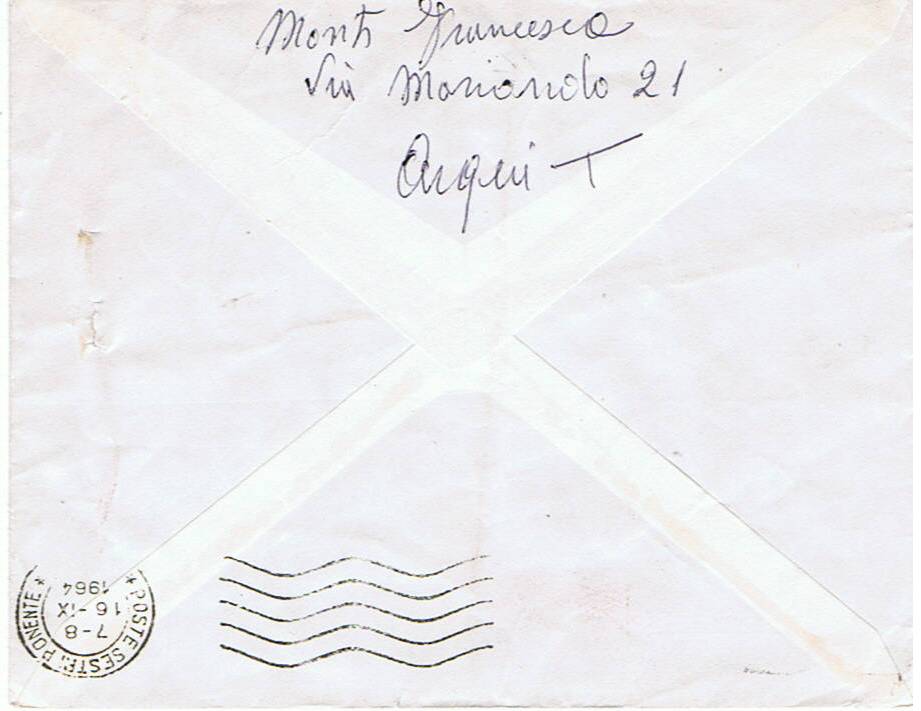 Monti Francesco
Via Moriondo 21
Acqui - T
POSTE SESTRI PONENTE
7-8
16-IX
1964